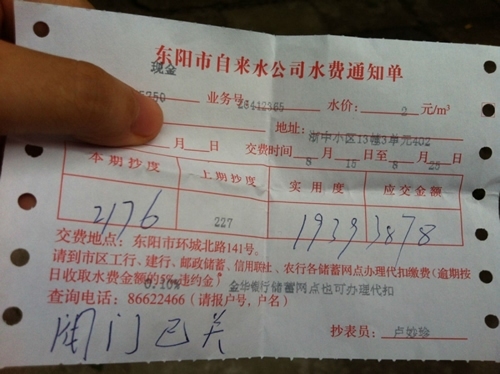 东阳市自来水公司水费通知单
现金
5250 业务号 28412365 水价: 2 元/m³
地址: 浙中小区13幢3单元402
月 日 交费时间 8 月 15 日至 8 月 25 日
本期抄度 上期抄度 实用度 应交金额
2176 227 1939 3878
交费地点: 东阳市环城北路141号。
请到市区工行、建行、邮政储蓄、信用联社、农行各储蓄网点办理代扣缴费(逾期按
日收取水费金额的 0.10% 违约金) 金华银行储蓄网点也可办理代扣
查询电话: 86622466 (请报户号, 户名)
闸门已关
抄表员: 卢妙珍